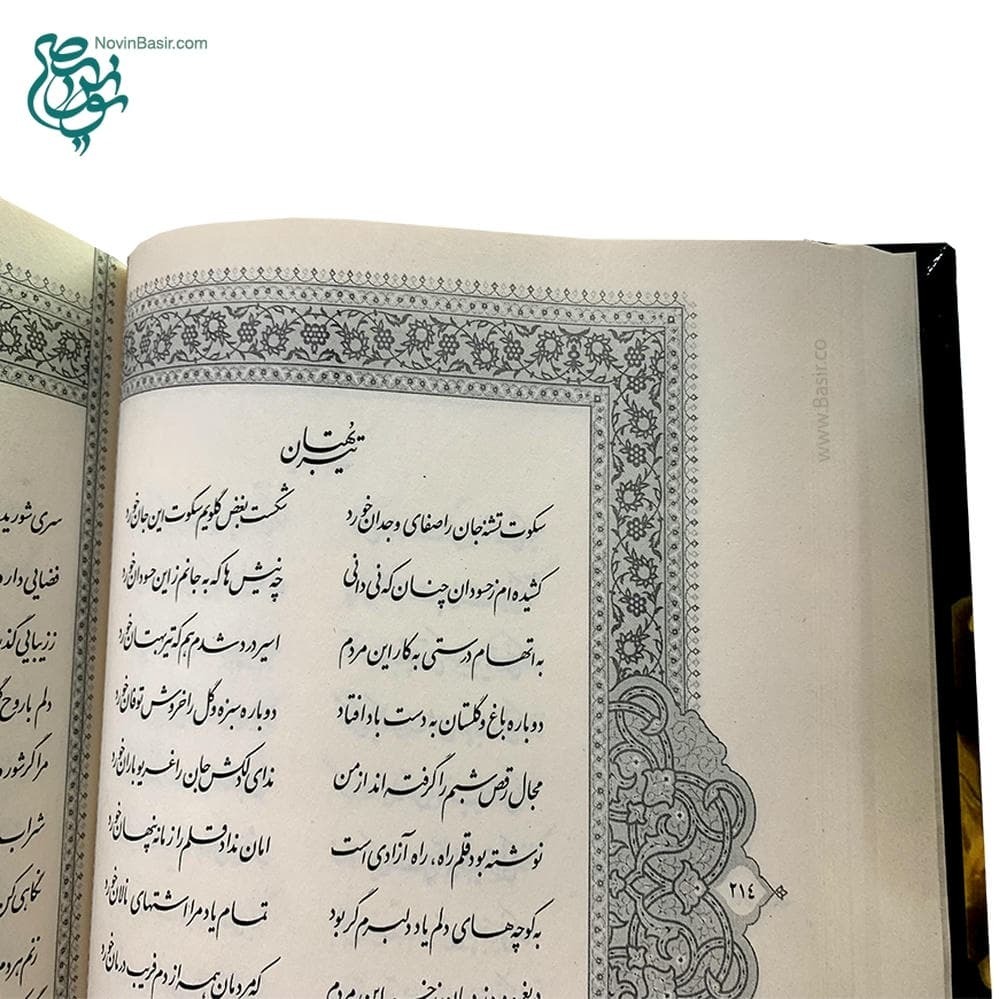 NovinBasir.com
www.Basir.co
تیر بهتان
سکوت تشنه جان را صفای وجدان خورد شکست بغض گلویم سکوت این جان خورد
کشیده ام ز حسودان چنان که نی دانی چه نیش ها که به جانم ز این حسودان خورد
به اتهام درستی به کار این مردم اسیر درد شدم هم که تیر بهتان خورد
دوباره باغ و گلستان به دست باد افتاد دوباره سبزه و گل را خروش توفان خورد
مجال رقص شبم را گرفته اند از من ندای دلکش جان را غریو باران خورد
نوشته بود قلم راه، راه آزادی است امان نداد قلم را زمانه پنهان خورد
به کوچه های دلم یاد دلبرم گر بود تمام یاد مرا اشتهای نالان خورد
که مردمان همه از دم فریب درمان خورد
٢١٤
سری شورید
فضایی دار
ز زیبایی گذ
دلم با روح
مرا گر شور
شراب
نگاهی کن
زنم هر دم